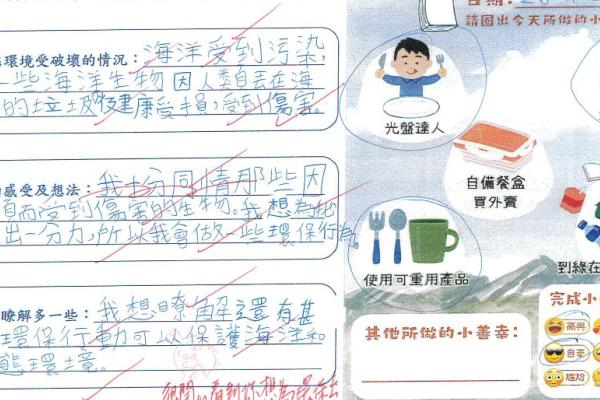 環境受破壞的情況：海洋受到污染，
一些海洋生物因人類丟在海
的垃圾使健康受損，受到傷害。
感受及想法：我十分同情那些因
而受到傷害的生物。我想為此
出一分力，所以我會做一些環保行為。
瞭解多一些：我想瞭解還有甚
環保行動可以保護海洋和
態環境。
很開心看到你想為環保出
日期：
請圈出今天所做的小
光盤達人
自備餐盒
買外賣
使用可重用產品
到綠在
其他所做的小善幸：
完成小
高興
自豪
尷尬